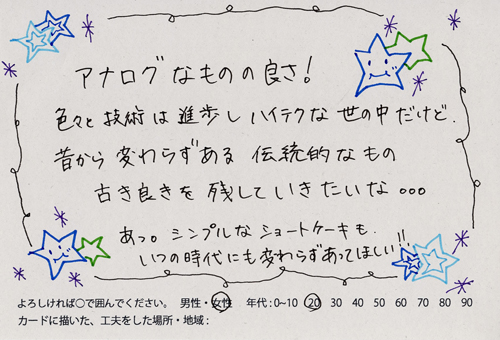 アナログなものの良さ！
色々と技術は進歩しハイテクな世の中だけど.
昔から変わらずある伝統的なもの
古き良きを残していきたいな。。。
あっ。シンプルなショートケーキも.
いつの時代にも変わらずあってほしい!!
よろしければ○で囲んでください。 男性・女性 年代：0~10 20 30 40 50 60 70 80 90
カードに描いた、工夫をした場所・地域：